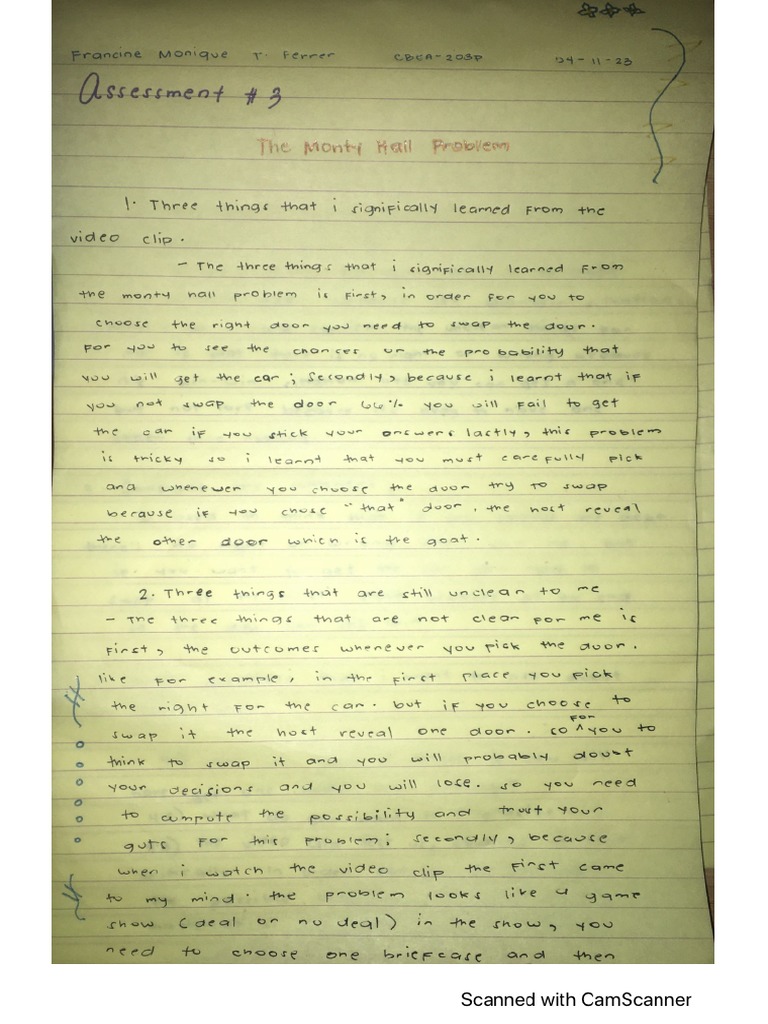 Francine Monique T. Ferrer CBEA-203P 24-11-23
Assessment # 3
The Monty Hall Problem
1. Three things that i significally learned from the
video clip.
- The three things that i significally learned from
the monty hall problem is first, in order for you to
choose the right door you need to swap the door.
For you to see the chances or the probability that
you will get the car; Secondly, because i learnt that if
you not swap the door 66% you will fail to get
the car if you stick your answers lastly, this problem
is tricky so i learnt that you must carefully pick
and whenever you choose the door try to swap
because if you chose "that" door, the host reveal
the other door which is the goat.
2. Three things that are still unclear to me
- The three things that are not clear for me is
first, the outcomes whenever you pick the door.
like for example, in the first place you pick
the right for the car. but if you choose to
swap it the host reveal one door. so for you to
think to swap it and you will probably doubt
your decisions and you will lose. so you need
to compute the possibility and trust your
guts for this problem; secondly, because
when i watch the video clip the first came
to my mind. the problem looks like a game
show (deal or no deal) in the show, you
need to choose one briefcase and then
Scanned with CamScanner